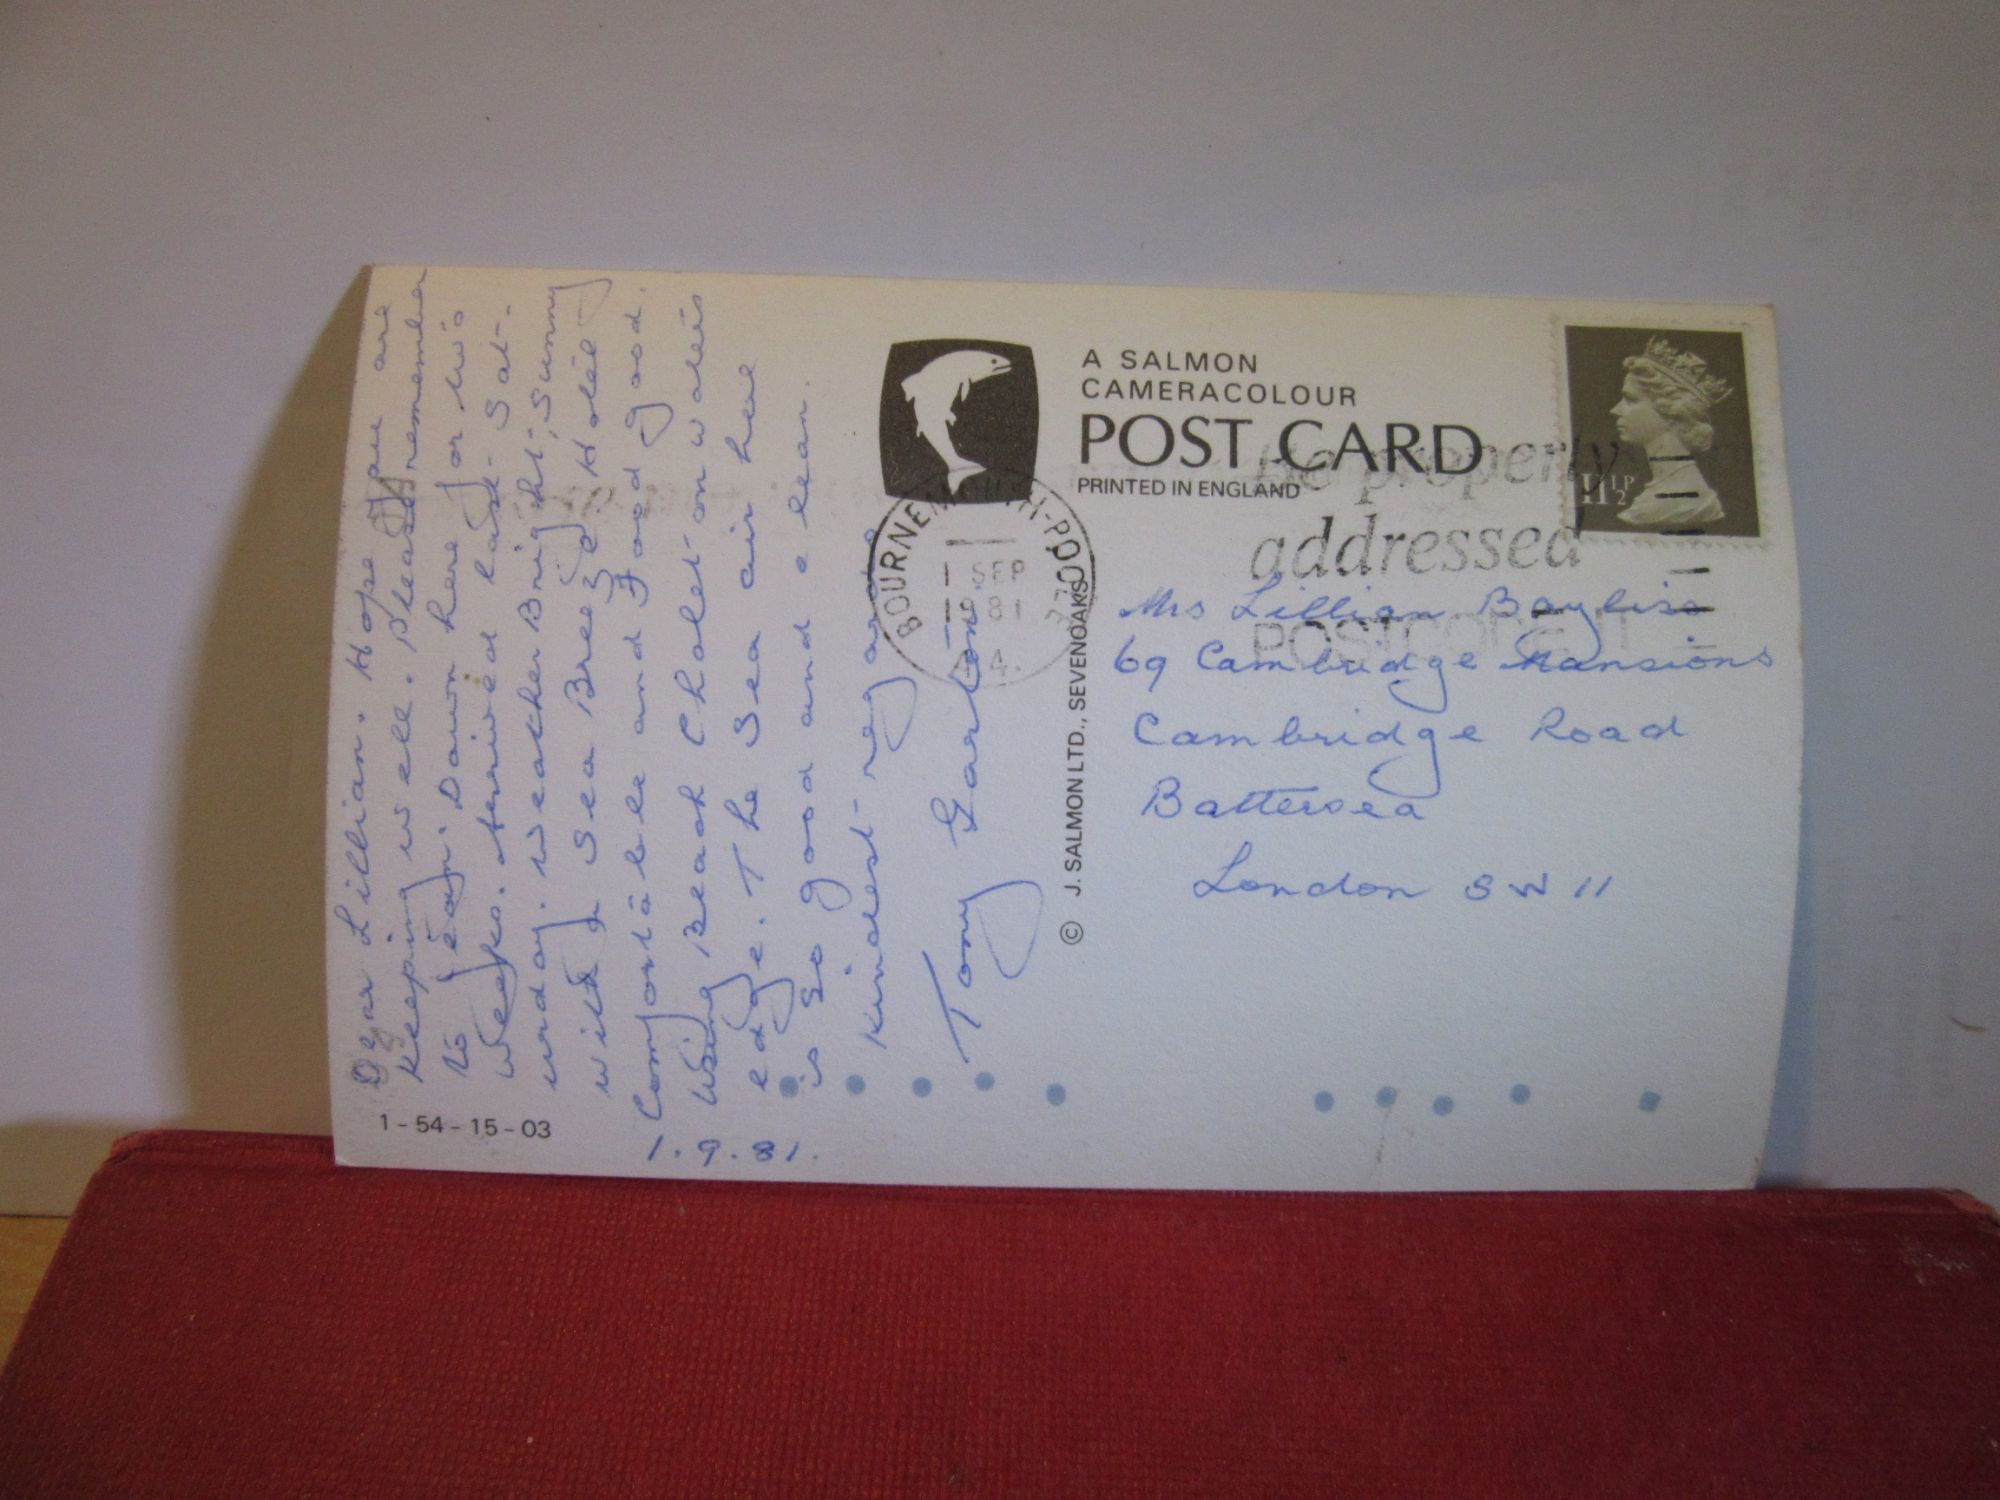 Dear Lillian. Hope you are
Keeping well. Please remember
to Down here for two
weeks. Arrived last Sat-
urday. Weather Bright, Sunny
with Sea Breeze. Hotel
Comfortable and Food good.
Using Beach Chalet on waters
edge. The Sea air here
is So good and clean.
Kindest regards
Tony Garton.
1-54-15-03
1.9.81.
A SALMON
CAMERACOLOUR
POST CARD
PRINTED IN ENGLAND
© J. SALMON LTD., SEVENOAKS
BOURNEMOUTH-POOLE
1 SEP
1981
Be properly
addressed
POSTCODE IT
11½P
Mrs Lillian Bayliss
69 Cambridge Mansions
Cambridge Road
Battersea
London SW11